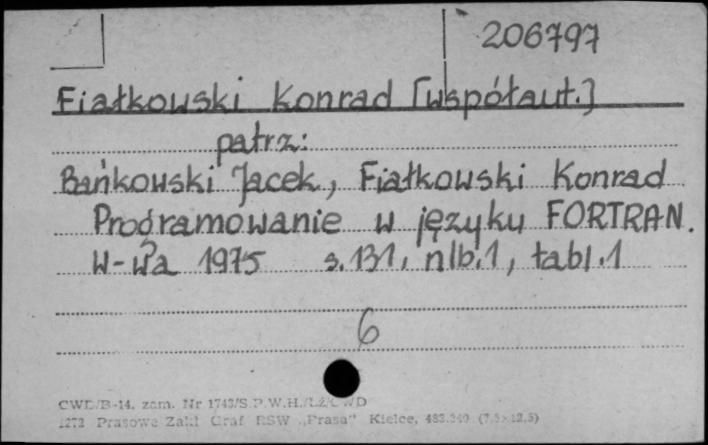 206797
Fiałkowski Konrad [współaut.]
patrz:
Bańkowski Jacek, Fiałkowski Konrad
Programowanie w języku FORTRAN.
W-wa 1975 s. 131, nlb. 1, tabl. 1
6
CWD/B-14. zam. Nr 1743/S.P.W.H./
1272 Prasowe Zakł Graf RSW „Prasa" Kielce, (7,5×12,5)